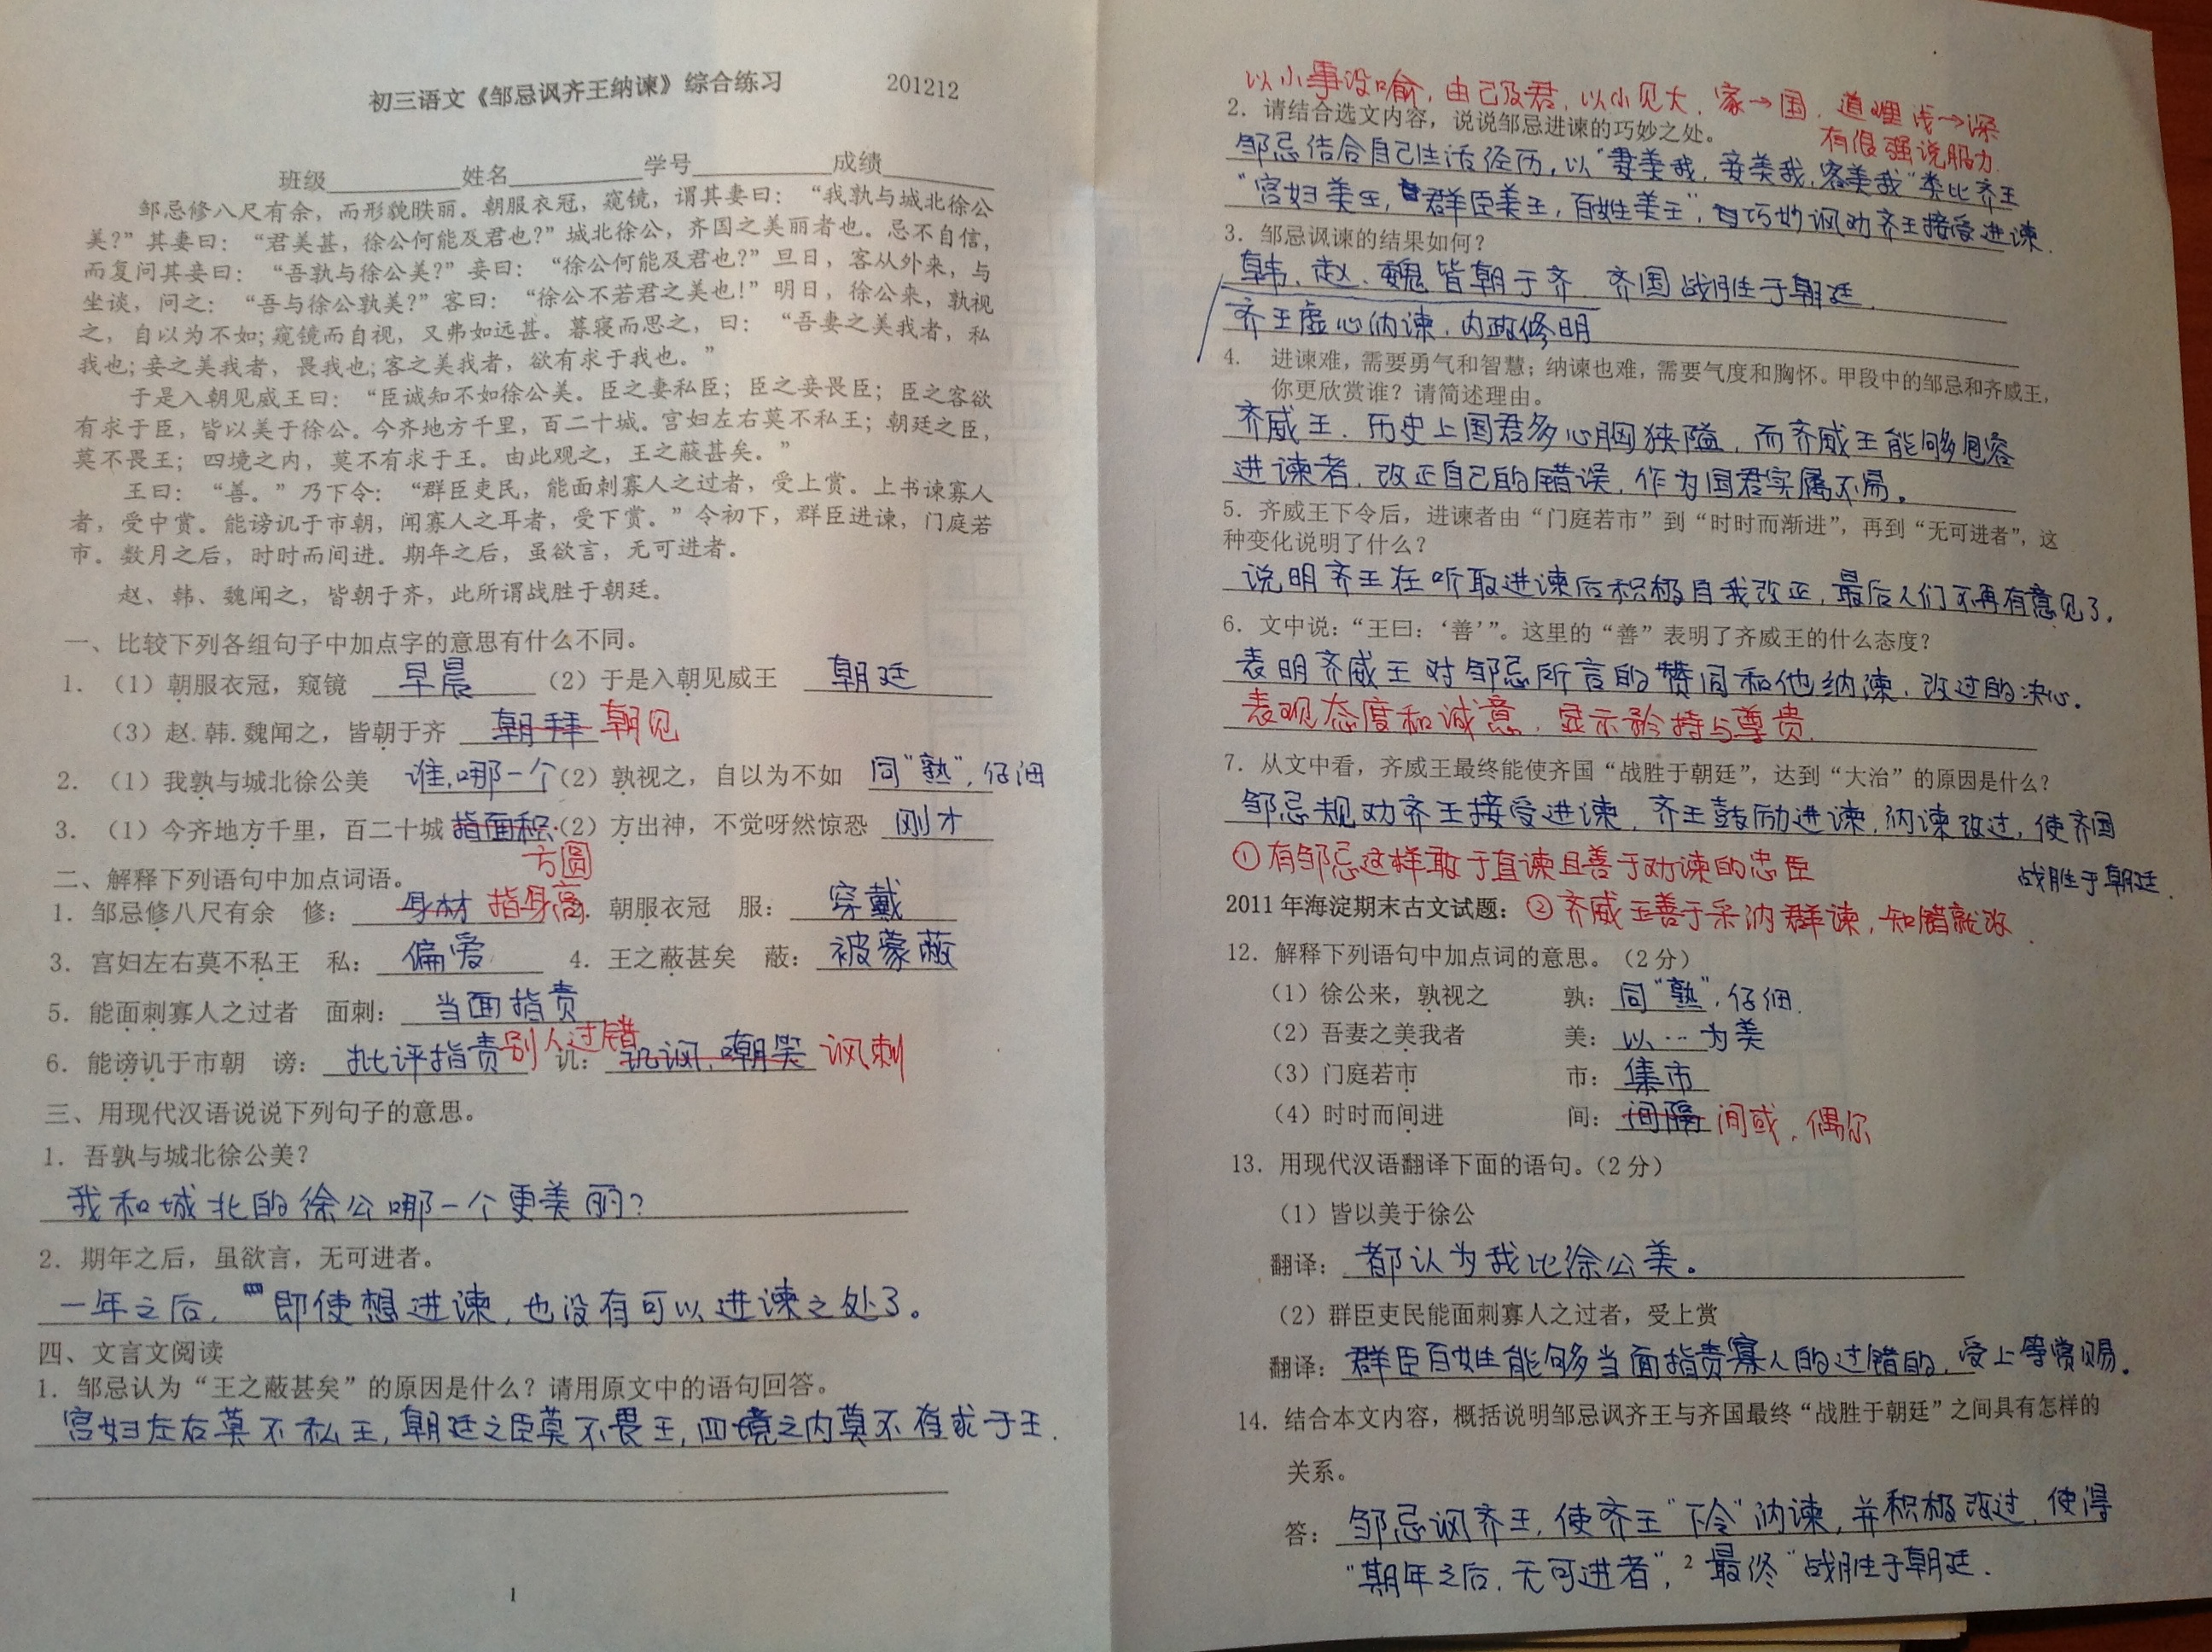 初三语文《邹忌讽齐王纳谏》综合练习 201212
班级 姓名 学号 成绩
邹忌修八尺有余，而形貌昳丽。朝服衣冠，窥镜，谓其妻曰：“我孰与城北徐公
美？”其妻曰：“君美甚，徐公何能及君也？”城北徐公，齐国之美丽者也。忌不自信，
而复问其妾曰：“吾孰与徐公美？”妾曰：“徐公何能及君也？”旦日，客从外来，与
坐谈，问之：“吾与徐公孰美？”客曰：“徐公不若君之美也！”明日，徐公来，孰视
之，自以为不如；窥镜而自视，又弗如远甚。暮寝而思之，曰：“吾妻之美我者，私
我也；妾之美我者，畏我也；客之美我者，欲有求于我也。”
于是入朝见威王曰：“臣诚知不如徐公美。臣之妻私臣；臣之妾畏臣；臣之客欲
有求于臣，皆以美于徐公。今齐地方千里，百二十城。宫妇左右莫不私王；朝廷之臣，
莫不畏王；四境之内，莫不有求于王。由此观之，王之蔽甚矣。”
王曰：“善。”乃下令：“群臣吏民，能面刺寡人之过者，受上赏。上书谏寡人
者，受中赏。能谤讥于市朝，闻寡人之耳者，受下赏。”令初下，群臣进谏，门庭若
市。数月之后，时时而间进。期年之后，虽欲言，无可进者。
赵、韩、魏闻之，皆朝于齐，此所谓战胜于朝廷。
一、比较下列各组句子中加点字的意思有什么不同。
1．（1）朝服衣冠，窥镜 早晨 （2）于是入朝见威王 朝廷
（3）赵.韩.魏闻之，皆朝于齐 朝拜 朝见
2．（1）我孰与城北徐公美 谁，哪一个（2）孰视之，自以为不如 同“熟”，仔细
3．（1）今齐地方千里，百二十城 指面积（2）方出神，不觉呀然惊恐 刚才
方圆
二、解释下列语句中加点词语。
1．邹忌修八尺有余 修： 身材 指身高. 朝服衣冠 服： 穿戴
3．宫妇左右莫不私王 私： 偏爱 4．王之蔽甚矣 蔽： 被蒙蔽
5．能面刺寡人之过者 面刺： 当面指责
6．能谤讥于市朝 谤： 批评指责别人过错 讥： 讥讽，嘲笑 讽刺
三、用现代汉语说说下列句子的意思。
1．吾孰与城北徐公美？
我和城北的徐公哪一个更美丽？
2．期年之后，虽欲言，无可进者。
一年之后，即使想进谏，也没有可以进谏之处了。
四、文言文阅读
1．邹忌认为“王之蔽甚矣”的原因是什么？请用原文中的语句回答。
宫妇左右莫不私王，朝廷之臣莫不畏王，四境之内莫不有求于王．
1
以小事设喻，由己及君，以小见大，家→国，道理浅→深
有很强说服力.
2．请结合选文内容，说说邹忌进谏的巧妙之处。
邹忌结合自己生活经历，以“妻美我，妾美我，客美我”类比齐王
“宫妇美王，群臣美王，百姓美王”，巧妙讽劝齐王接受进谏．
3．邹忌讽谏的结果如何？
韩、赵、魏皆朝于齐．齐国战胜于朝廷．
齐王虚心纳谏，内政修明
4. 进谏难，需要勇气和智慧；纳谏也难，需要气度和胸怀。甲段中的邹忌和齐威王，
你更欣赏谁？请简述理由。
齐威王．历史上国君多心胸狭隘，而齐威王能够包容
进谏者，改正自己的错误，作为国君实属不易。
5．齐威王下令后，进谏者由“门庭若市”到“时时而渐进”，再到“无可进者”，这
种变化说明了什么？
说明齐王在听取进谏后积极自我改正，最后人们不再有意见了．
6．文中说：“王曰：‘善’”。这里的“善”表明了齐威王的什么态度？
表明齐威王对邹忌所言的赞同和他纳谏，改过的决心．
表现态度和诚意，显示矜持与尊贵.
7．从文中看，齐威王最终能使齐国“战胜于朝廷”，达到“大治”的原因是什么？
邹忌规劝齐王接受进谏，齐王鼓励进谏，纳谏改过，使齐国
战胜于朝廷．
①有邹忌这样敢于直谏且善于劝谏的忠臣
2011年海淀期末古文试题：②齐威王善于采纳群谏，知错就改．
12．解释下列语句中加点词的意思。（2分）
（1）徐公来，孰视之 孰： 同“熟”，仔细.
（2）吾妻之美我者 美： 以…为美
（3）门庭若市 市： 集市
（4）时时而间进 间： 间隔 间或，偶尔
13．用现代汉语翻译下面的语句。（2分）
（1）皆以美于徐公
翻译： 都认为我比徐公美。
（2）群臣吏民能面刺寡人之过者，受上赏
翻译： 群臣百姓能够当面指责寡人的过错的，受上等赏赐．
14．结合本文内容，概括说明邹忌讽齐王与齐国最终“战胜于朝廷”之间具有怎样的
关系。
答： 邹忌讽齐王，使齐王“下令”纳谏，并积极改过，使得
“期年之后，无可进者”，最终“战胜于朝廷．
2